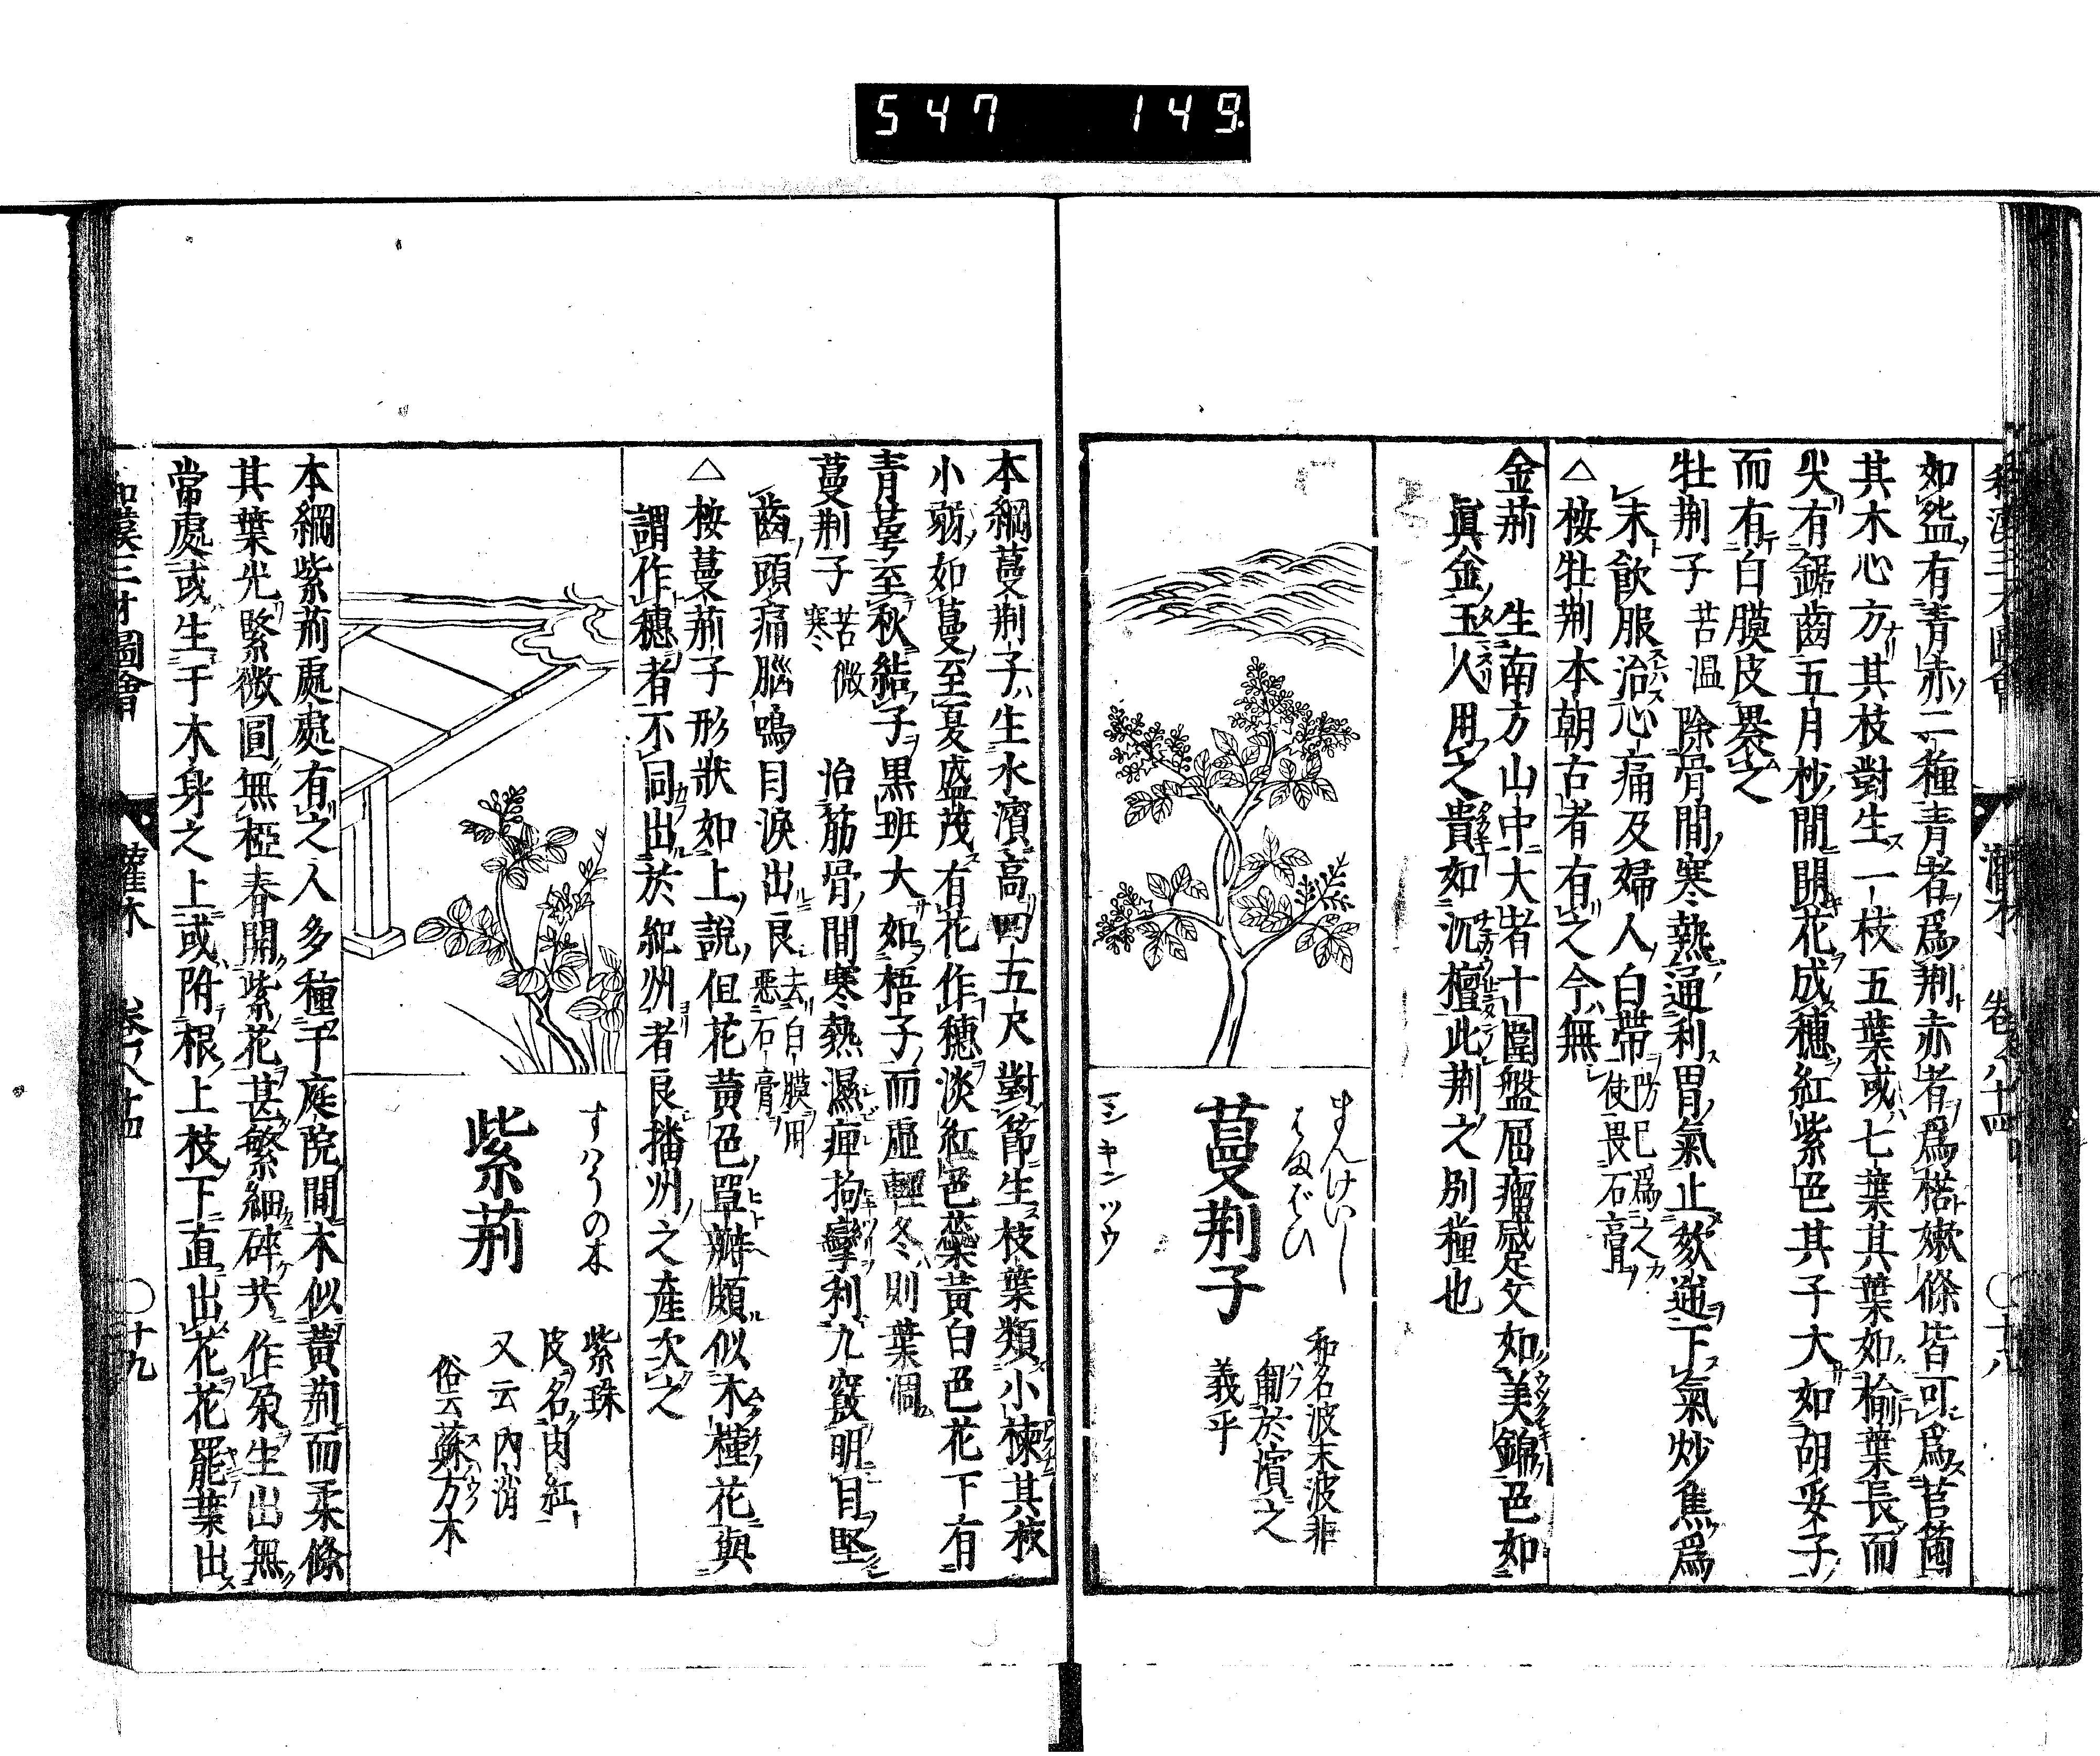 547 149
和漢三才圖會 灌木 卷八十四 〇十八
如盌有青赤二種青者爲荆赤者爲楛嫩條皆可爲筥箘
其木心方其枝對生一枝五葉或七葉其葉如榆葉長而
尖有鋸齒五月杪間開花成穗紅紫色其子大如胡荽子
而有白膜皮褁之
牡荆子 苦温 除骨間寒熱通利胃氣止欬逆下氣炒焦爲
末飮服治心痛及婦人白帶 防已爲之使畏石膏
△按牡荆本朝古者有之今無
金荆 生南方山中大者十圍盤屈瘤蹙文如美錦色如
眞金玉人用之貴如沉檀此荆之別種也
まんけいし
はまばひ
蔓荆子
マンキンツウ
和名波末波非
蔔於濱之
義乎
本綱蔓荆子生水濱高四五尺對節生枝葉類小楝其枝
小弱如蔓至夏盛茂有花作穗淡紅色蘂黃白色花下有
青萼至秋結子黒班大如梧子而虛輕冬則葉凋
蔓荆子 苦微寒 治筋骨間寒熱濕痺拘攣利九竅明目堅
齒頭痛腦鳴目淚出良 去白膜用惡石膏
△按蔓荆子形狀如上說但花黃色單瓣頗似木槿花與
謂作穗者不同出於紀州者良播州之產次之
すはうの木
紫荆
紫珠
皮名肉紅
又云內消
俗云蘇方木
本綱紫荆處處有之人多種于庭院間木似黃荆而柔條
其葉光緊微圓無椏春開紫花甚繁細碎共作朶生出無
當處或生于木身之上或附根上枝下直出花花罷葉出
和漢三才圖會 灌木 卷八十四 〇十九